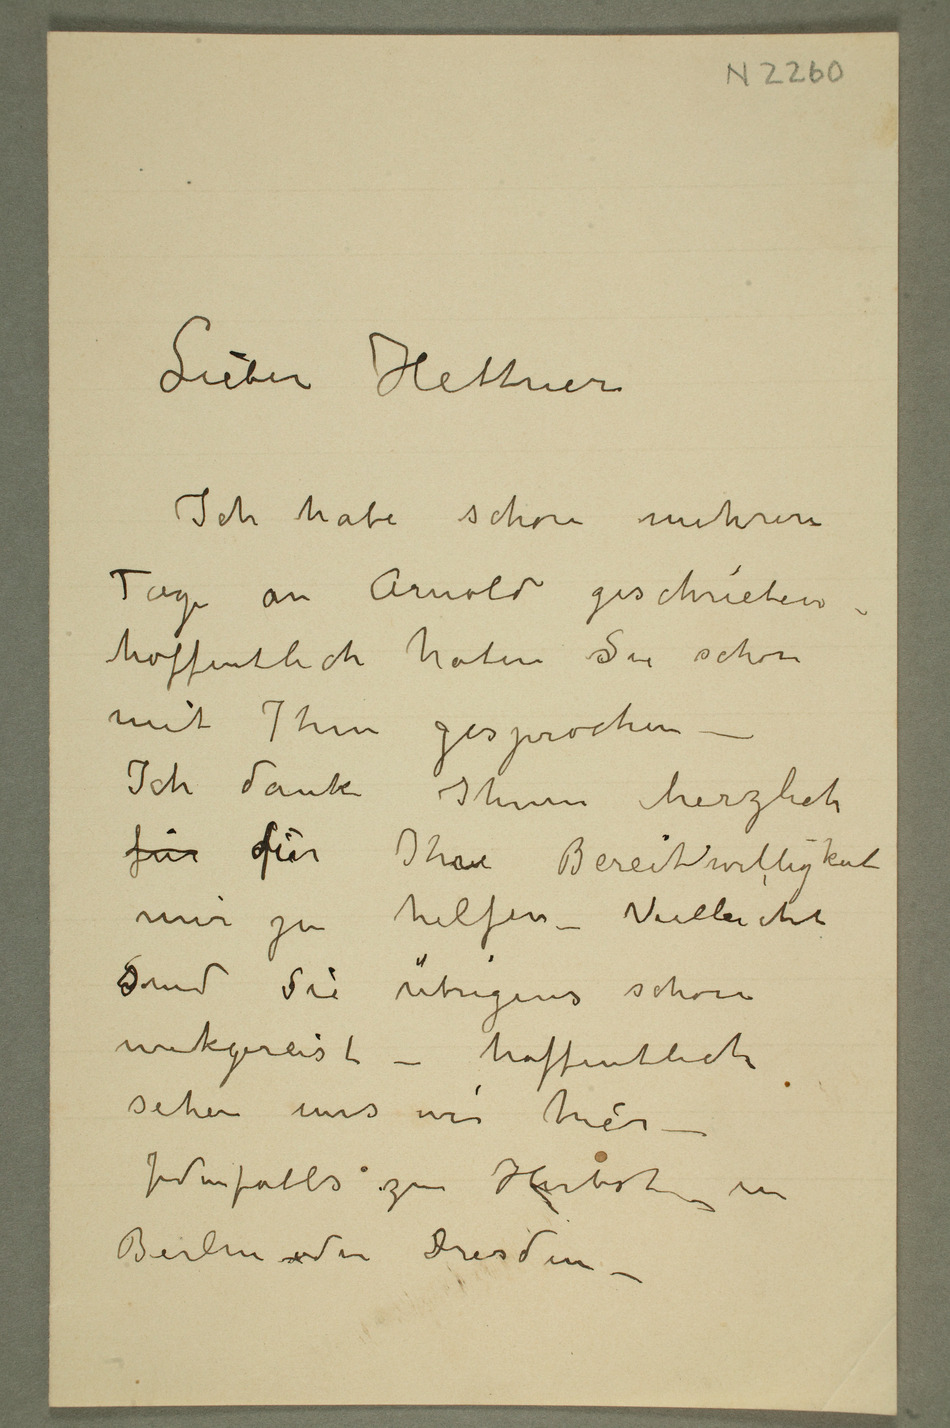 N 2260
Lieber Hettner
Ich habe schon mehrere
Tage an Arnold geschrieben –
hoffentlich haben Sie schon
mit Ihm gesprochen –
Ich danke Ihnen herzlich
für für Ihre Bereitwilligkeit
mir zu helfen – Vielleicht
sind Sie übrigens schon
wekgereist – hoffentlich
sehen uns wir hier –
Jedenfalls zum Herbst – in
Berlin oder Dresden –